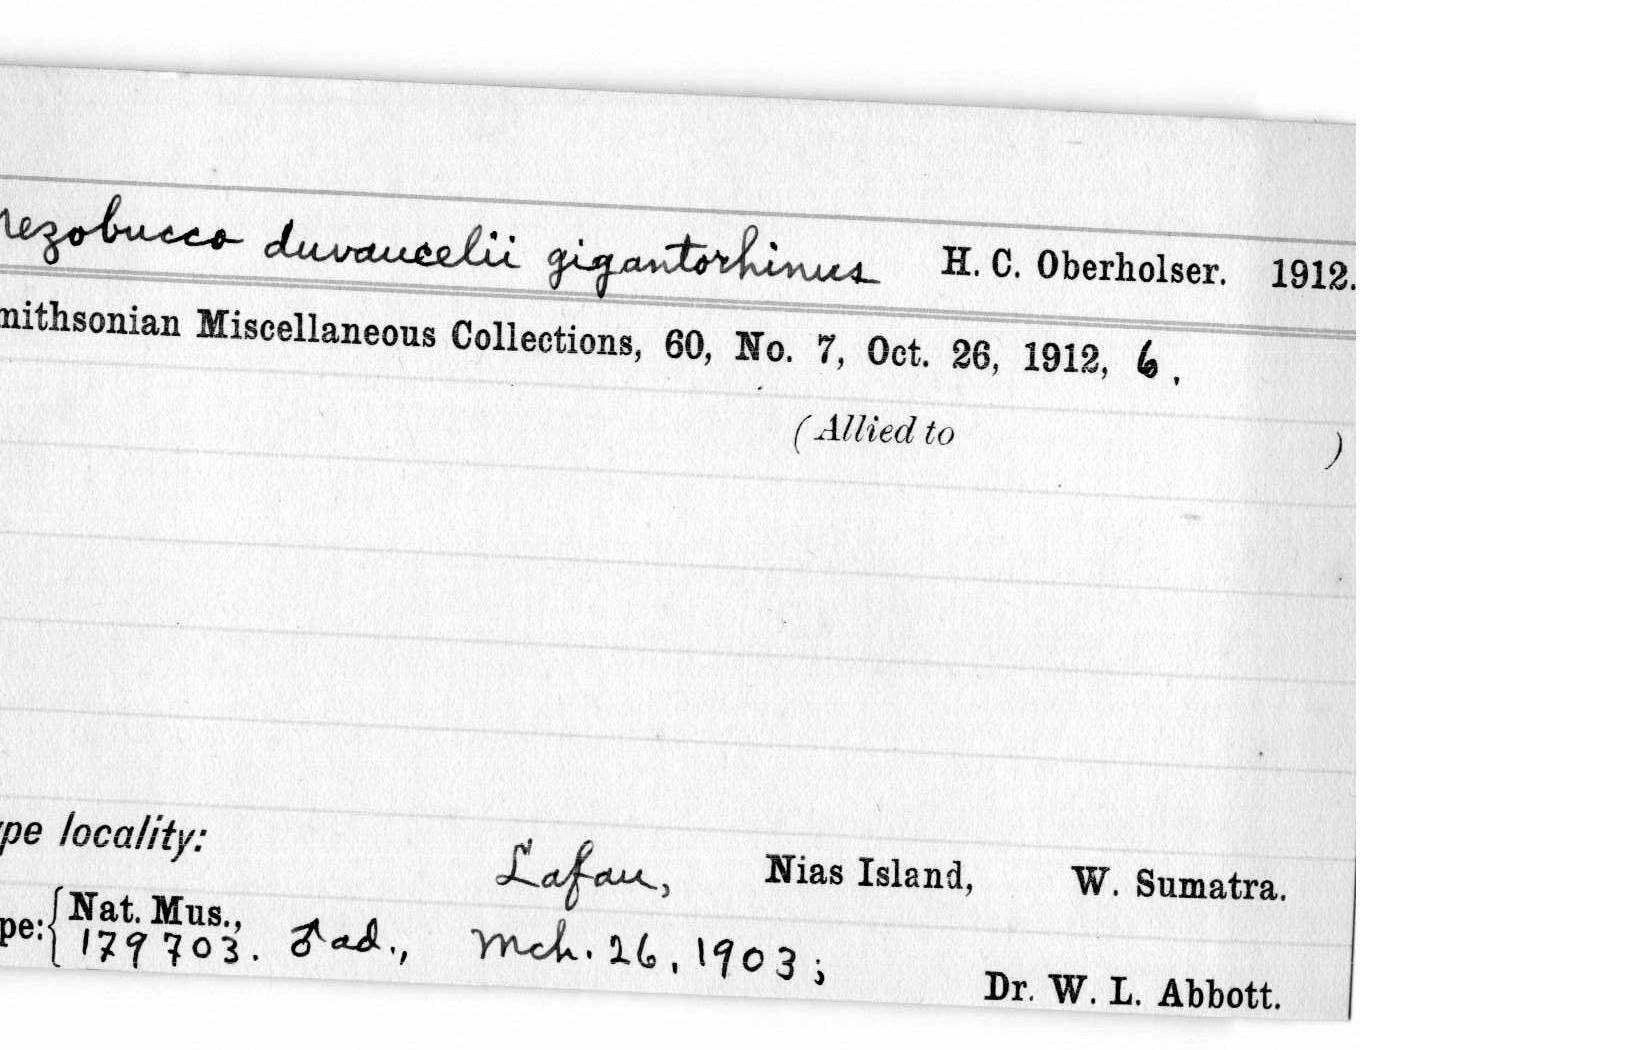 rezobucco duvaucelii gigantorhinus H. C. Oberholser. 1912.
mithsonian Miscellaneous Collections, 60, No. 7, Oct. 26, 1912, 6.
(Allied to )
ype locality:
Lafau, Nias Island, W. Sumatra.
pe: { Nat. Mus.,
179703. ♂ ad., Mch. 26, 1903;
Dr. W. L. Abbott.